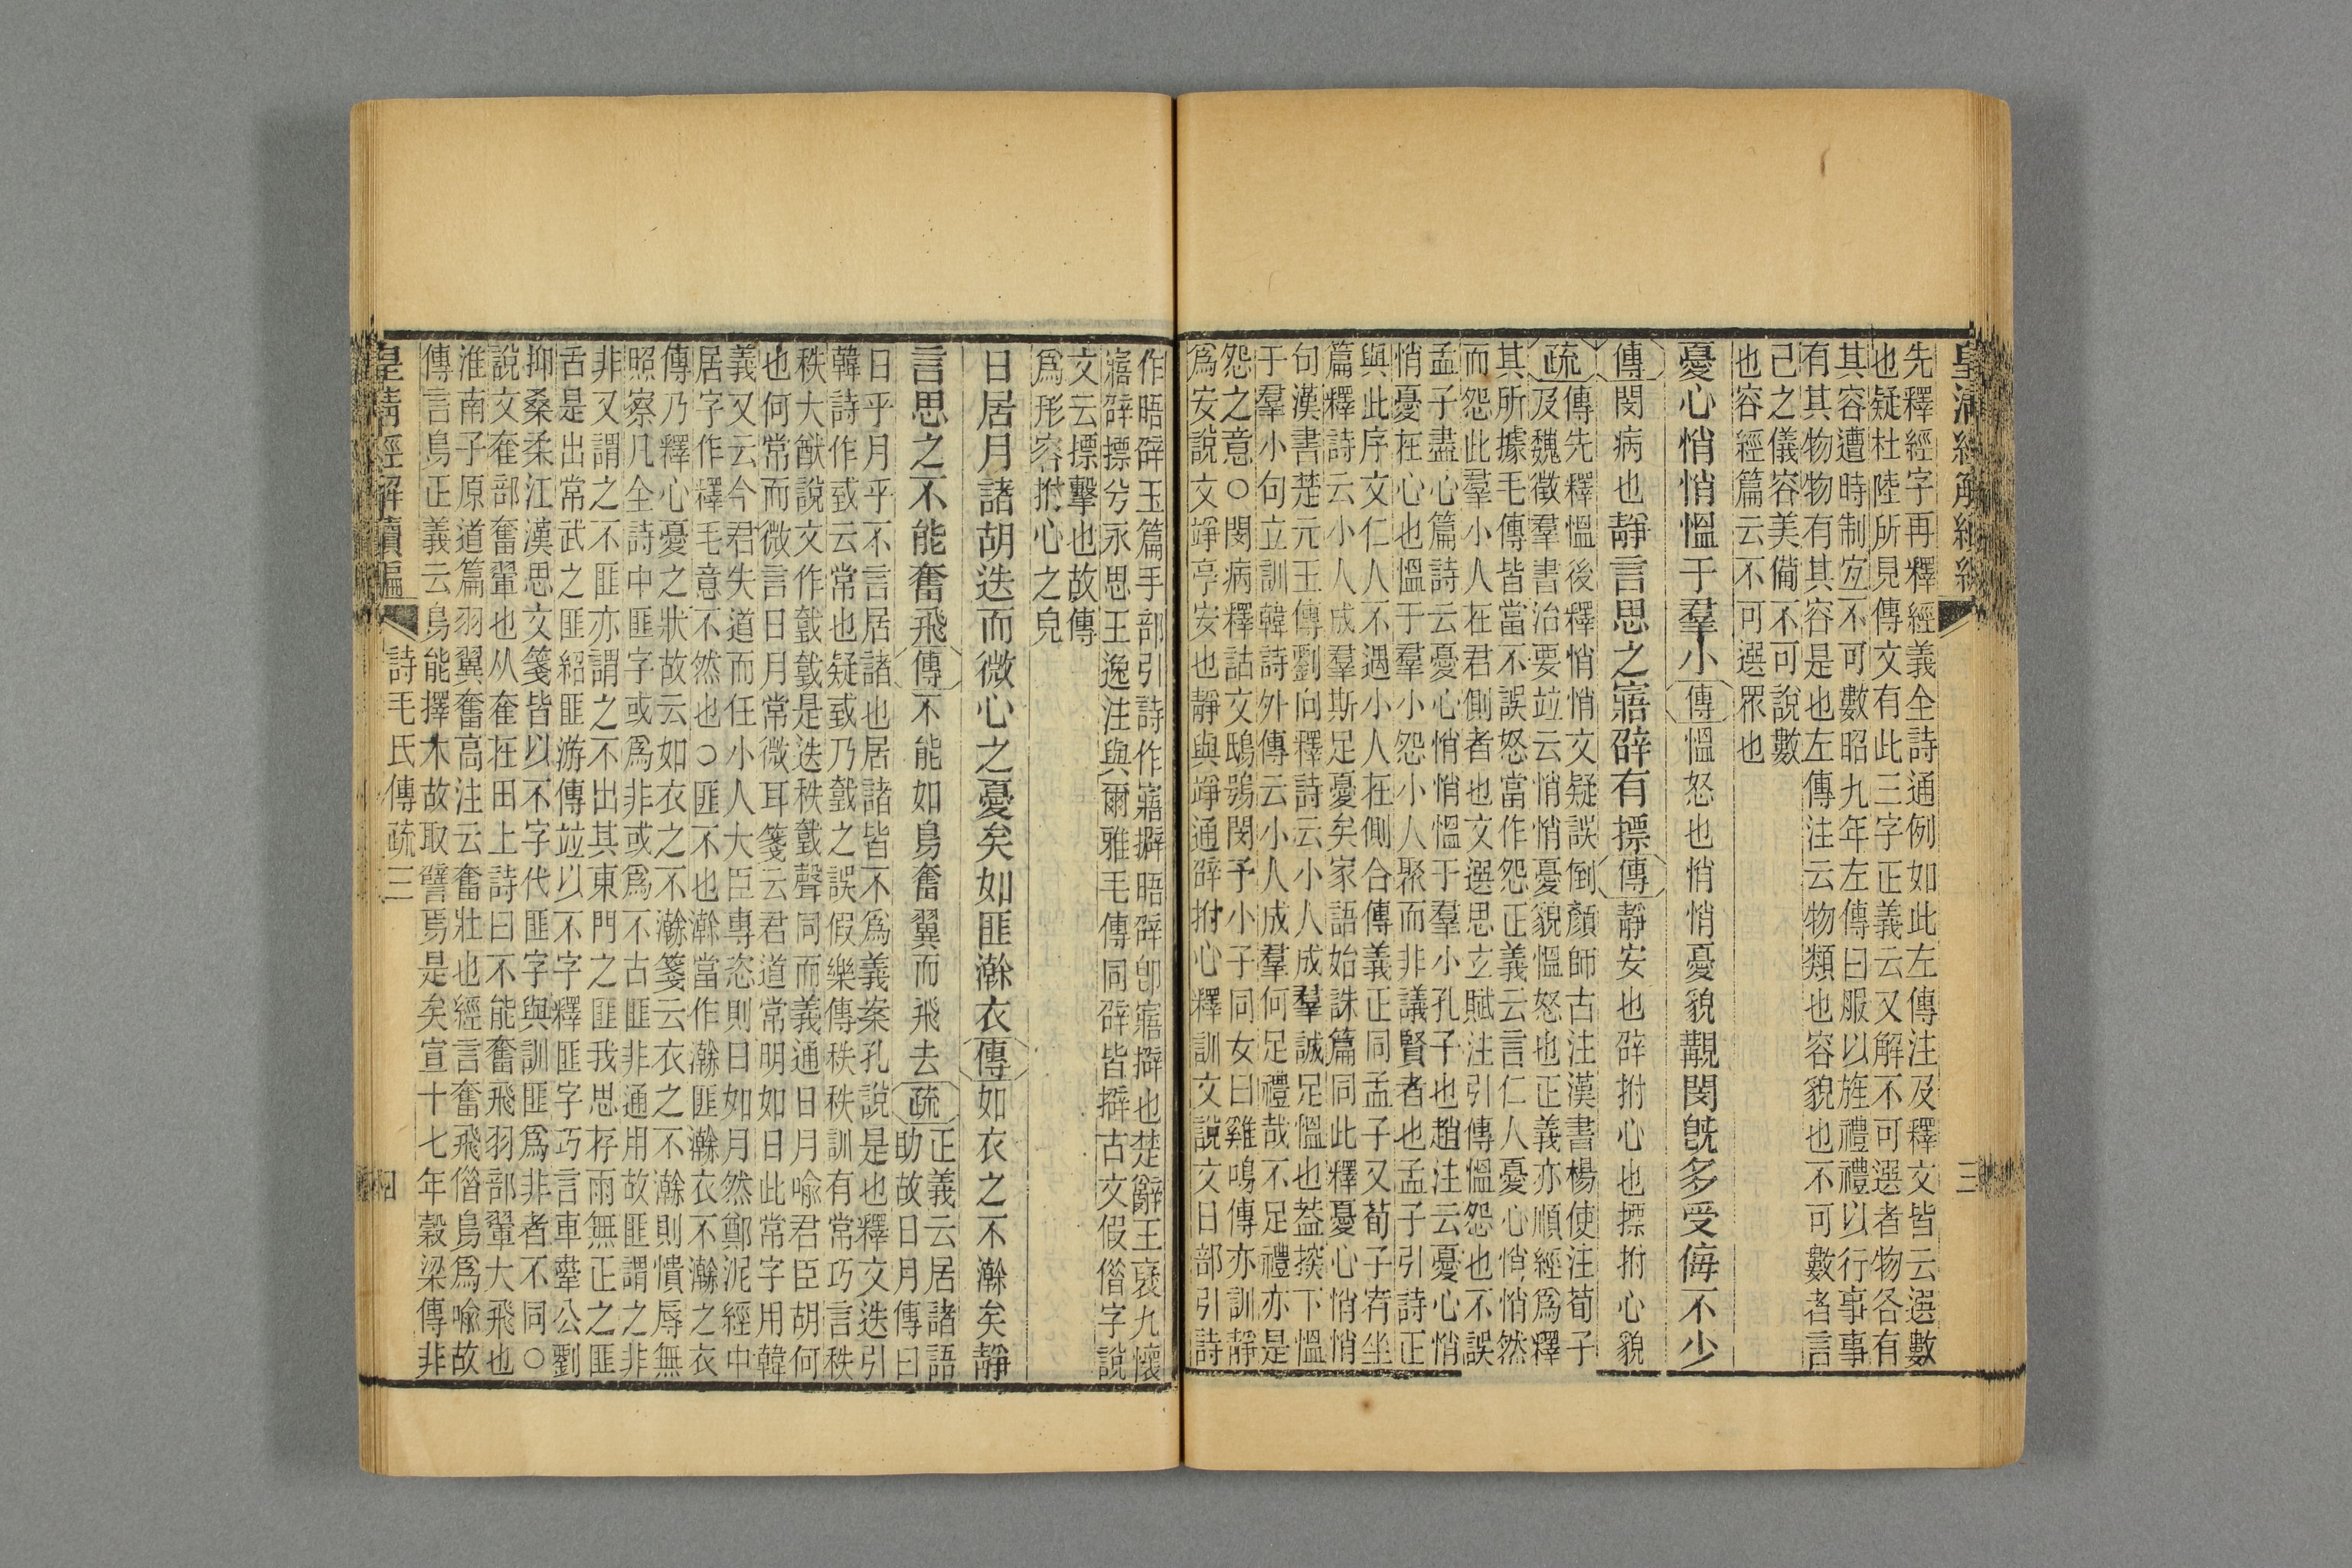 皇清經解續編
三
先釋經字再釋經義全詩通例如此左傳注及釋文皆云選數
也疑杜陸所見傳文有此三字正義云又解不可選者物各有
其容遭時制宐不可數昭九年左傳曰服以旌禮禮以行事事
有其物物有其容是也左傳注云物類也容貌也不可數者言
己之儀容美備不可說數
也容經篇云不可選眾也
憂心悄悄慍于羣小傳慍怒也悄悄憂貌覯閔旣多受侮不少
傳閔病也靜言思之寤辟有摽傳靜安也辟拊心也摽拊心貌
疏
傳先釋慍後釋悄悄文疑誤倒顏師古注漢書楊倞注荀子
及魏徵羣書治要竝云悄悄憂貌慍怒也正義亦順經爲釋
其所據毛傳皆當不誤怒當作怨正義云言仁人憂心悄悄然
而怨此羣小人在君側者也文選思玄賦注引傳慍怨也不誤
孟子盡心篇詩云憂心悄悄慍于羣小孔子也趙注云憂心悄
悄憂在心也慍于羣小怨小人聚而非議賢者也孟子引詩正
與此序文仁人不遇小人在側合傳義正同孟子又荀子宥坐
篇釋詩云小人成羣斯足憂矣家語始誅篇同此釋憂心悄悄
句漢書楚元王傳劉向釋詩云小人成羣誠足慍也葢揆下慍
于羣小句立訓韓詩外傳云小人成羣何足禮哉不足禮亦是
怨之意○閔病釋詁文鴟鴞閔予小子同女曰雞鳴傳亦訓靜
爲安說文竫亭安也靜與竫通辟拊心釋訓文說文日部引詩
作晤辟玉篇手部引詩作寤擗晤辟卽寤擗也楚辭王襃九懷
寤辟摽兮永思王逸注與爾雅毛傳同辟皆擗古文假偕字說
文云摽擊也故傳
爲形容拊心之皃
日居月諸胡迭而微心之憂矣如匪澣衣傳如衣之不澣矣靜
言思之不能奮飛傳不能如鳥奮翼而飛去疏
正義云居諸語
助故日月傳曰
日乎月乎不言居諸也居諸皆不爲義案孔說是也釋文迭引
韓詩作䟫云常也疑䟫乃䟫之誤假樂傳秩秩訓有常巧言秩
秩大猷說文作䟫䟫是迭秩䟫聲同而義通日月喩君臣胡何
也何常而微言日月常微耳箋云君道常明如日此常字用韓
義又云今君失道而任小人大臣專恣則日如月然鄭泥經中
居字作釋毛意不然也○匪不也澣當作澣匪澣衣不澣之衣
傳乃釋心憂之狀故云如衣之不澣箋云衣之不澣則憒辱無
照察凡全詩中匪字或爲非或爲不古匪非通用故匪謂之非
非又謂之不匪亦謂之不出其東門之匪我思存雨無正之匪
舌是出常武之匪紹匪游傳竝以不字釋匪字巧言車舝公劉
抑桑柔江漢思文箋皆以不字代匪字與訓匪爲非者不同○
說文奞部奮翬也从奞在田上詩曰不能奮飛羽部翬大飛也
淮南子原道篇羽翼奮高注云奮壯也經言奮飛偕鳥爲喩故
傳言鳥正義云鳥能擇木故取譬焉是矣宣十七年穀梁傳非
皇清經解續編
詩毛氏傳疏三
四